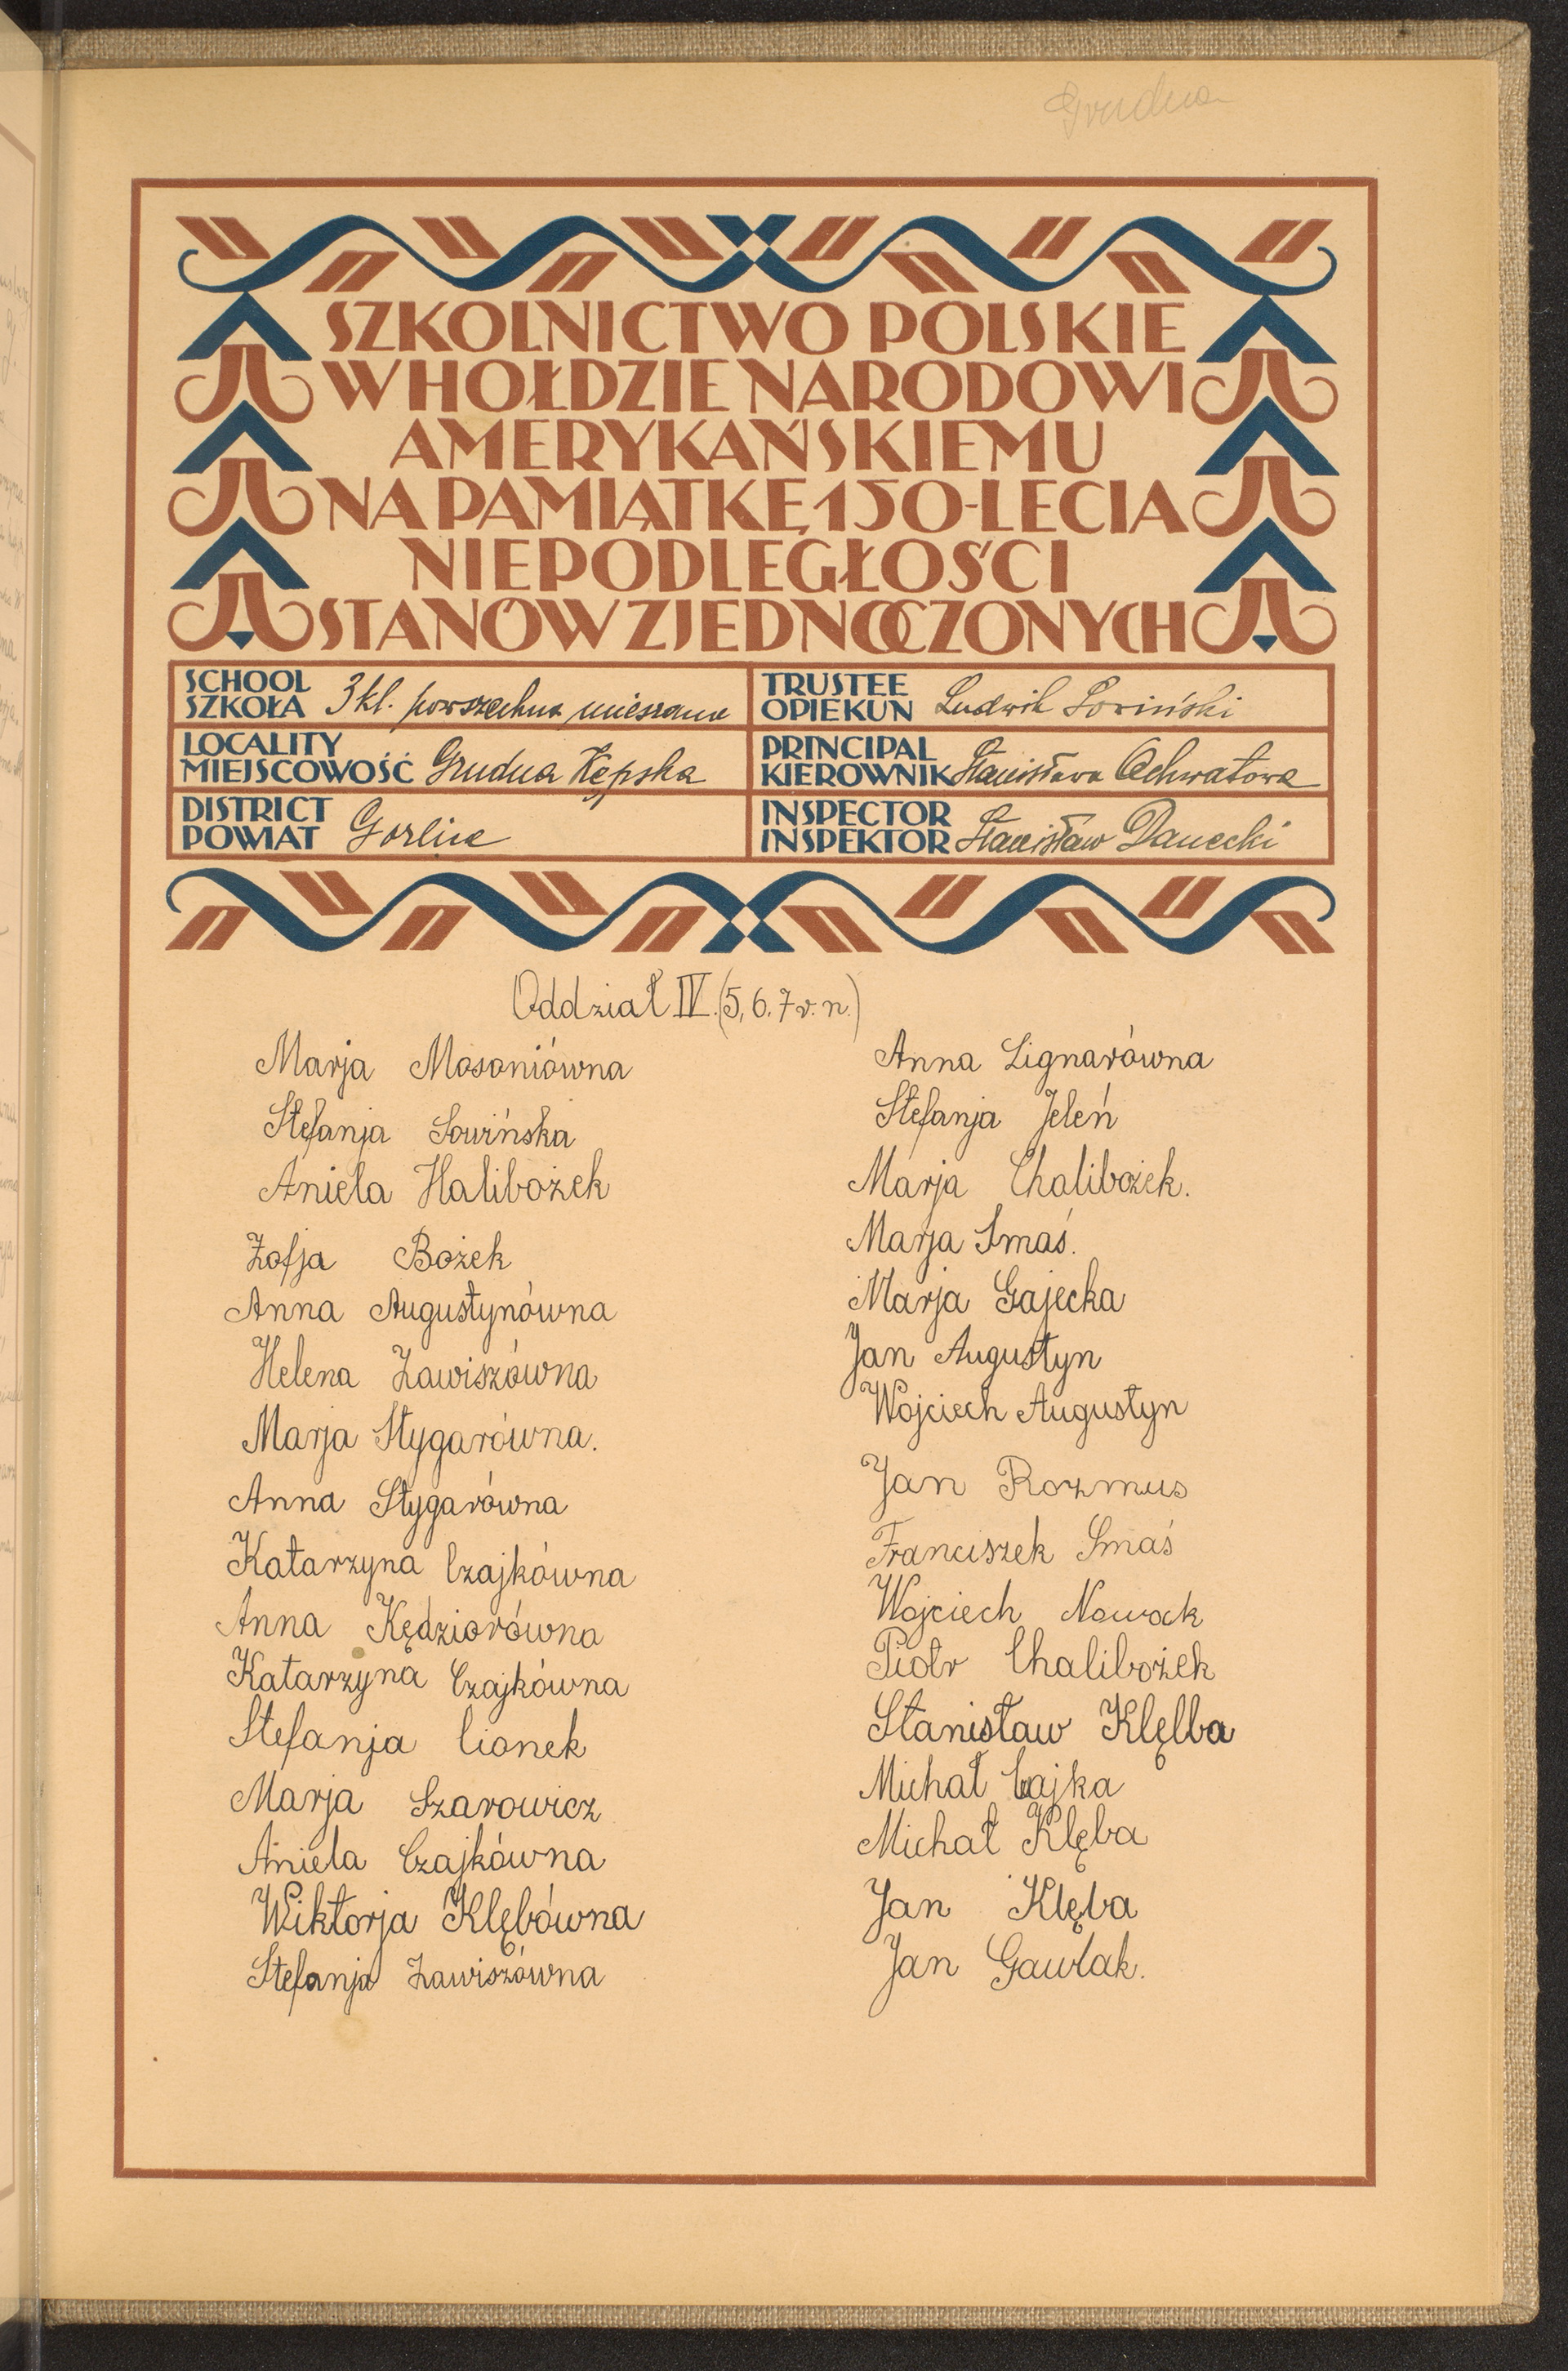 Grudna
SZKOLNICTWO POLSKIE
W HOŁDZIE NARODOWI
AMERYKAŃSKIEMU
NA PAMIĄTKĘ 150-LECIA
NIEPODLEGŁOŚCI
STANÓW ZJEDNOCZONYCH
SCHOOL
SZKOŁA 3 kl. powszechna mieszana
TRUSTEE
OPIEKUN Ludwik Sowiński
LOCALITY
MIEJSCOWOŚĆ Grudna Kępska
PRINCIPAL
KIEROWNIK Stanisława Ochwatowa
DISTRICT
POWIAT Gorlice
INSPECTOR
INSPEKTOR Stanisław Danecki
Oddział IV. (5, 6. 7 r. n.)
Marja Mosoniówna
Stefanja Sowińska
Aniela Halibożek
Zofja Bożek
Anna Augustynówna
Helena Zawiszówna
Marja Stygarówna.
Anna Stygarówna
Katarzyna Czajkówna
Anna Kędziorówna
Katarzyna Czajkówna
Stefanja Cionek
Marja Szarowicz
Aniela Czajkówna
Wiktorja Klębówna
Stefanja Zawiszówna
Anna Lignarówna
Stefanja Jeleń
Marja Chalibożek.
Marja Smaś.
Marja Gajecka
Jan Augustyn
Wojciech Augustyn
Jan Rozmus
Franciszek Smaś
Wojciech Nowak
Piotr Chalibożek
Stanisław Klęlba
Michał Cajka
Michał Klęba
Jan Klęba
Jan Gawlak.